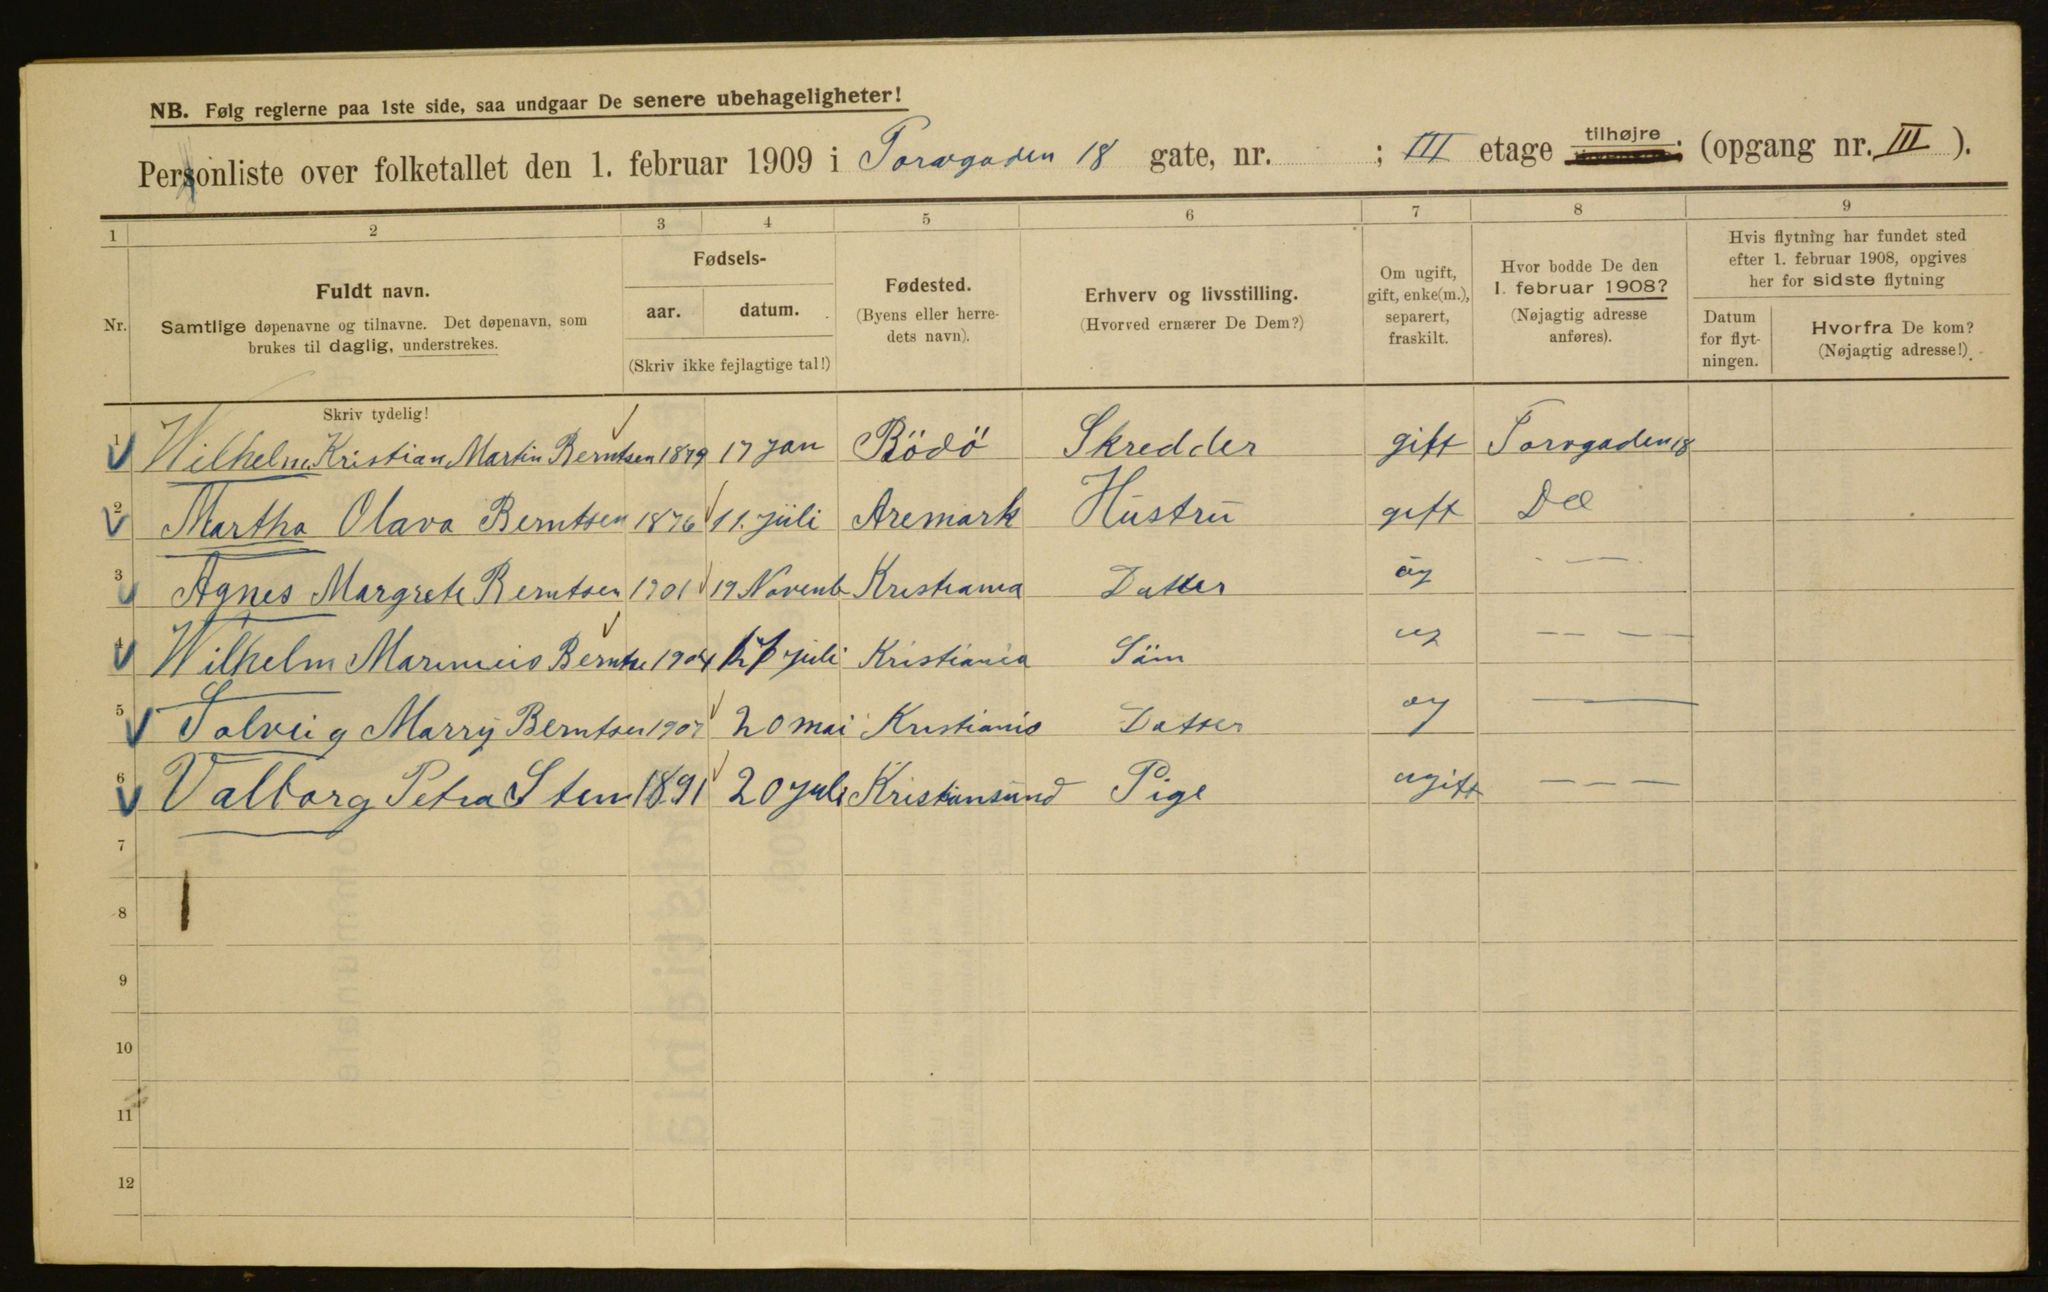 NB. Følg reglerne paa 1ste side, saa undgaar De senere ubehageligheter!
Personliste over folketallet den 1. februar 1909 i Torvgaden 18 gate, nr. ; III etage tilhøjre (opgang nr. III ).
1 2 3 4 5 6 7 8 9
Nr.
Fuldt navn.
Samtlige døpenavne og tilnavne. Det døpenavn, som
brukes til daglig, understrekes.
Fødsels-
aar. datum.
(Skriv ikke fejlagtige tal!)
Fødested.
(Byens eller herre-
dets navn).
Erhverv og livsstilling.
(Hvorved ernærer De Dem?)
Om ugift,
gift, enke(m.),
separert,
fraskilt.
Hvor bodde De den
1. februar 1908?
(Nøjagtig adresse
anføres).
Hvis flytning har fundet sted
efter 1. februar 1908, opgives
her for sidste flytning
Datum
for flyt-
ningen.
Hvorfra De kom?
(Nøjagtig adresse!)
Skriv tydelig!
1 Wilhelm Kristian Martin Berntsen 1879 17 jan Bödö Skredder gift Torvgaden 18
2 Martha Olava Berntsen 1876 11. juli Aremark Hustru gift Do
3 Agnes Margrete Berntsen 1901 19 Novemb Kristiania Datter ug — —
4 Wilhelm Berntse 1904 juli Kristiania Söm ug — — — —
5 Solveig Marry Berntsen 1907 20 mai Kristiania Datter ug —
6 Valborg Petra Sten 1891 20 juli Kristiansund Pige ugift — — —
7
8
9
10
11
12